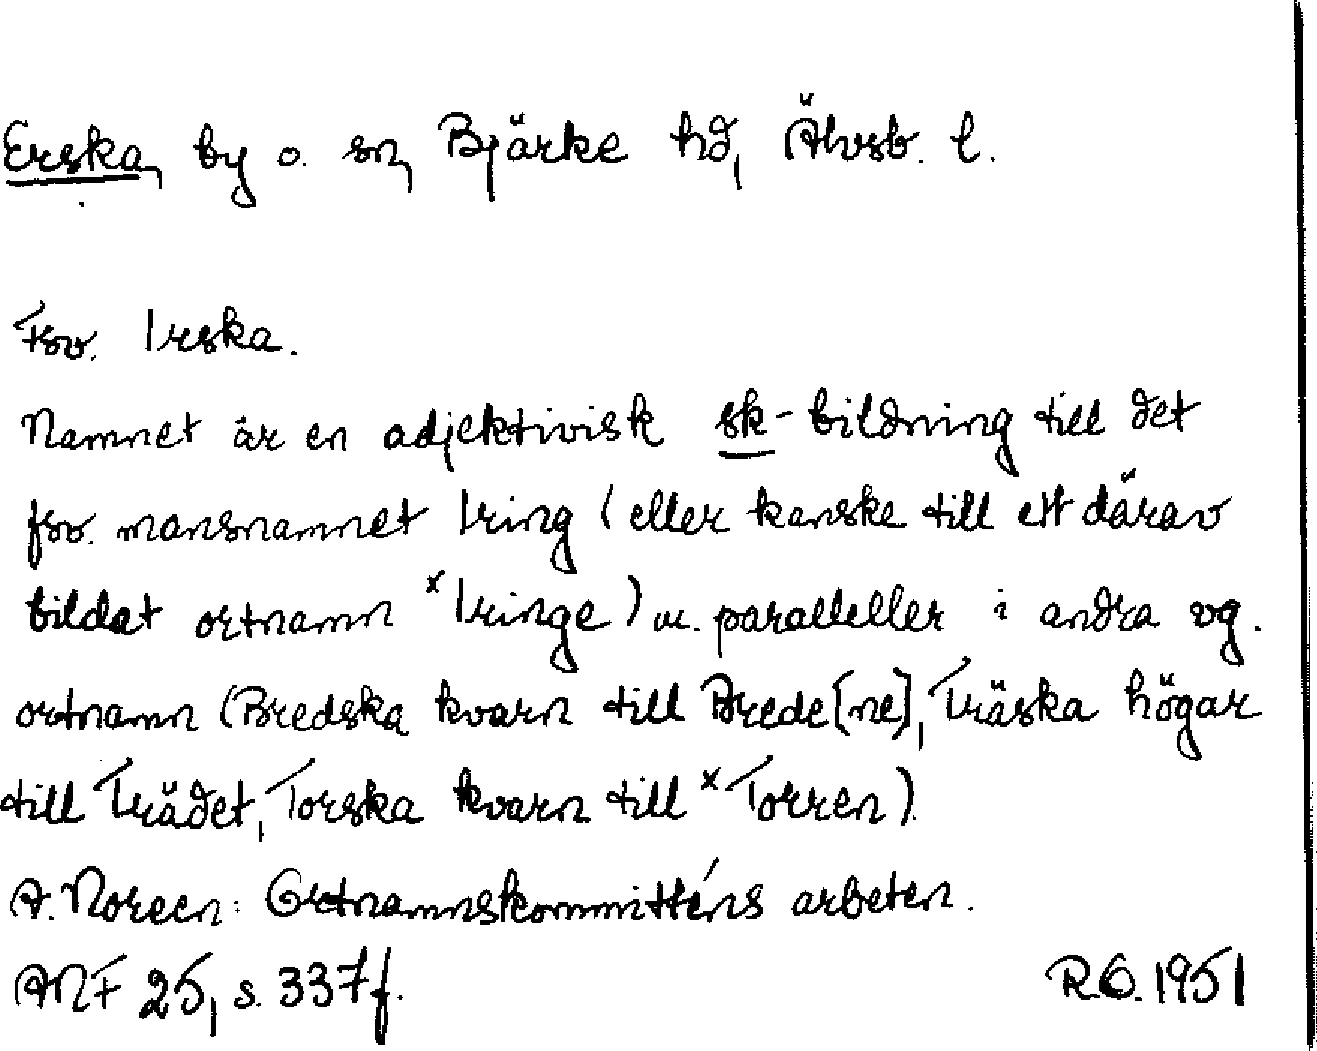 Erska, by o. sn, Bjärke hd, Älvsb. l.
Fsv. Irska.
Namnet är en adjektivisk sk-bildning till det
fsv. mansnamnet Iring (eller kanske till ett därav
bildat ortnamn ˣIringe) m. paralleller i andra vg.
ortnamn (Bredska kvarn till Brede[ne], Träska högar
till Trädet, Torska kvarn till ˣTorren).
A. Noreen: Ortnamnskommitténs arbeten.
ANF 25, s. 337f.
R.O. 1951